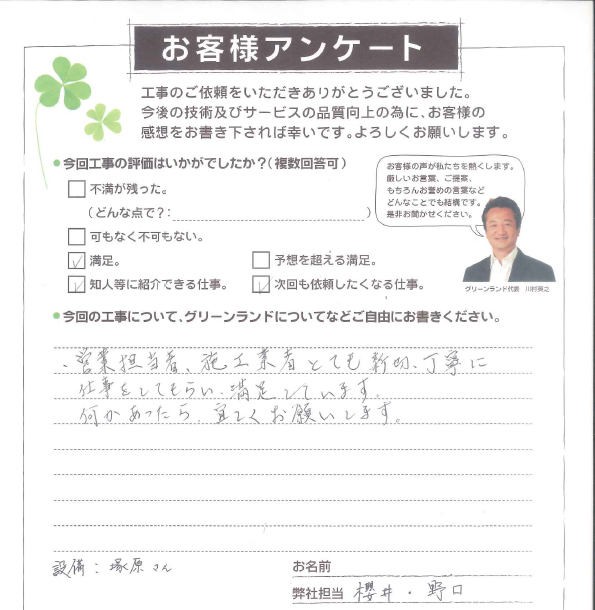 お客様アンケート
工事のご依頼をいただきありがとうございました。
今後の技術及びサービスの品質向上の為に、お客様の
感想をお書き下されば幸いです。よろしくお願いします。
今回工事の評価はいかがでしたか？（複数回答可）
不満が残った。
（どんな点で？：　）
可もなく不可もない。
満足。
予想を超える満足。
知人等に紹介できる仕事。
次回も依頼したくなる仕事。
お客様の声が私たちを熱くします。
厳しいお言葉、ご提案、
もちろんお誉めの言葉など
どんなことでも結構です。
是非お聞かせください。
グリーンランド代表　川村英之
今回の工事について、グリーンランドについてなどご自由にお書きください。
・営業担当者、施工業者とても親切、丁寧に
仕事をしてもらい、満足しています。
何かあったら、宜しくお願いします。
設備：塚原さん
お名前
弊社担当　櫻井・野口